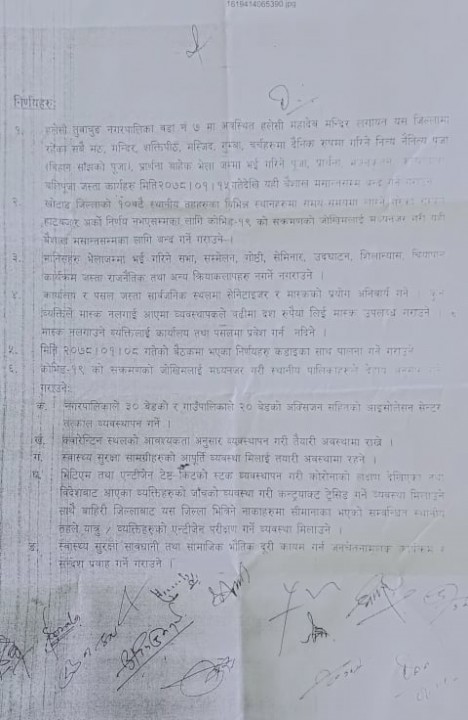 1619414065390.jpg
निर्णयहरुः
१. हलेसी तुवाचुङ नगरपालिका वडा नं ७ मा अवस्थित हलेसी महादेव मन्दिर लगायत यस जिल्लामा
रहेका सबै मठ, मन्दिर, शक्तिपीठ, मस्जिद, गुम्बा, चर्चहरुमा दैनिक रुपमा गरिने नित्य पूजा
(बिहान साँझको पूजा), प्रार्थना बाहेक भेला जम्मा भई गरिने पूजा, प्रार्थना,
बलिपूजा जस्ता कार्यहरु मिति २०७८।०१।१४ गतेदेखि यही बैशाख मसान्तसम्म बन्द गर्ने
२. खोटाङ जिल्लाको १० वटै स्थानीय तहहरुका विभिन्न स्थानहरुमा समय समयमा लाग्ने
हाटबजार अर्को निर्णय नभएसम्मका लागि कोभिड-१९ को सक्रमणको जोखिमलाई मध्यनजर गरी यही
बैशाख मसान्तसम्मका लागि बन्द गर्ने गराउने ।
३. मानिसहरु भेलाजम्मा भई गरिने सभा, सम्मेलन, गोष्ठी, सेमिनार, उदघाटन, शिलान्यास,
कार्यक्रम जस्ता राजनैतिक तथा अन्य क्रियाकलापहरु नगर्ने नगराउने ।
४. कार्यालय र पसल जस्ता सार्वजनिक स्थलमा सेनिटाइजर र मास्कको प्रयोग अनिवार्य गर्ने ।
व्यक्तिले मास्क नलगाई आएमा व्यवस्थापकले बढीमा दश रुपैया लिई मास्क उपलब्ध गराउने ।
मास्क नलगाउने व्यक्तिलाई कार्यालय तथा पसलमा प्रवेश गर्न नदिने ।
५. मिति २०७८।०१।०८ गतेको बैठकमा भएका निर्णयहरु कडाइका साथ पालना गर्ने गराउने
६. कोभिड-१९ को सक्रमणको जोखिमलाई मध्यनजर गरी स्थानीय पालिकाहरुले
गराउनेः
क. नगरपालिकाले ३० बेडको र गाउँपालिकाले २० बेडको अक्सिजन सहितको आइसोलेसन सेन्टर
तत्काल व्यवस्थापन गर्ने ।
ख. क्वारेन्टिन स्थलको आवश्यकता अनुसार व्यवस्थापन गरी तैयारी अवस्थामा राख्ने ।
ग. स्वास्थ्य सुरक्षा सामग्रीहरुको आपूर्ति व्यवस्था मिलाई तयारी अवस्थामा रहने ।
घ. भिटिएम तथा एन्टीजेन टेष्ट किटको स्टक व्यवस्थापन गरी कोरोनाको लक्षण देखिएका तथा
विदेशबाट आएका व्यक्तिहरुको जाँचको व्यवस्था गरी कन्ट्र्याक्ट ट्रेसिङ गर्ने व्यवस्था मिलाउने
साथै बाहिरी जिल्लाबाट यस जिल्ला भित्रिने नाकाहरुमा सीमानाका भएको सम्बन्धित स्थानीय
तहले यात्रु / व्यक्तिहरुको एन्टीजेन परीक्षण गर्ने व्यवस्था मिलाउने ।
ङ. स्वास्थ्य सुरक्षा सावधानी तथा सामाजिक भौतिक दूरी कायम गर्न जनचेतनामूलक कार्यक्रम र
सन्देश प्रवाह गर्ने गराउने ।